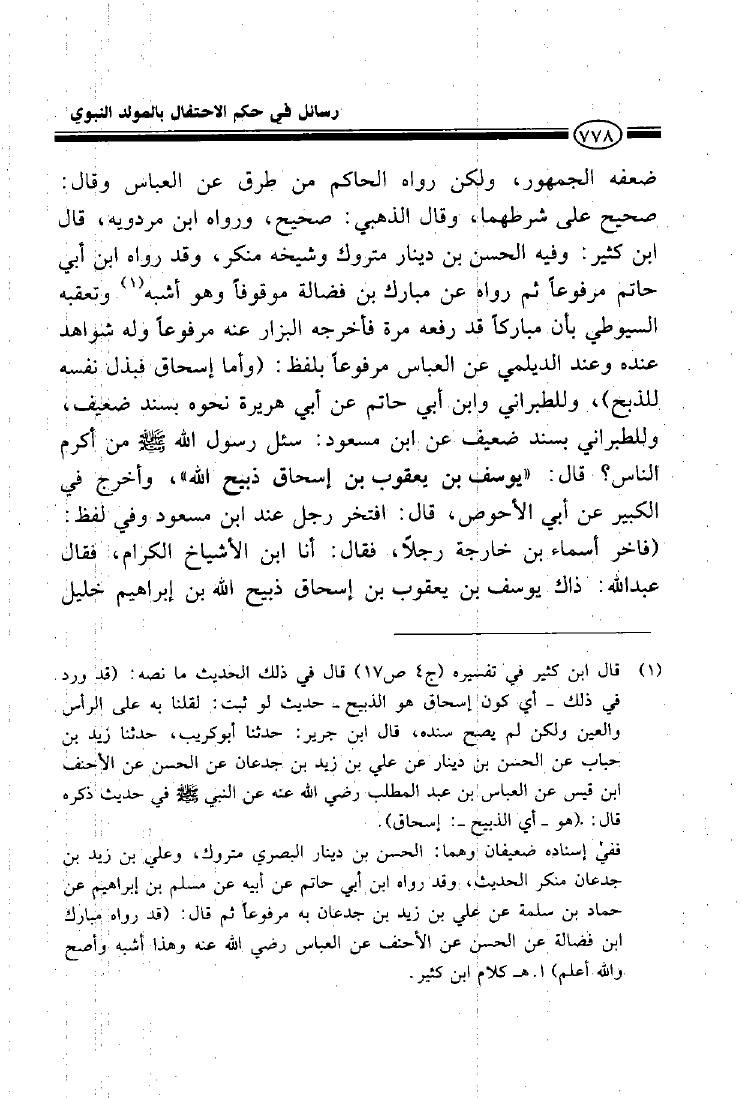 رسائل في حكم الاحتفال بالمولد النبوي
٧٧٨
ضعفه الجمهور، ولكن رواه الحاكم من طرق عن العباس وقال:
صحيح على شرطهما، وقال الذهبي: صحيح، ورواه ابن مردويه، قال
ابن كثير: وفيه الحسن بن دينار متروك وشيخه منكر، وقد رواه ابن أبي
حاتم مرفوعاً ثم رواه عن مبارك بن فضالة موقوفاً وهو أشبه(١) وتعقبه
السيوطي بأن مباركاً قد رفعه مرة فأخرجه البزار عنه مرفوعاً وله شواهد
عنده وعند الديلمي عن العباس مرفوعاً بلفظ: (وأما إسحاق فبذل نفسه
للذبح)، وللطبراني وابن أبي حاتم عن أبي هريرة نحوه بسند ضعيف،
وللطبراني بسند ضعيف عن ابن مسعود: سئل رسول الله ﷺ من أكرم
الناس؟ قال: «يوسف بن يعقوب بن إسحاق ذبيح الله»، وأخرج في
الكبير عن أبي الأحوص، قال: افتخر رجل عند ابن مسعود وفي لفظ:
(فاخر أسماء بن خارجة رجلاً، فقال: أنا ابن الأشياخ الكرام، فقال
عبدالله: ذاك يوسف بن يعقوب بن إسحاق ذبيح الله بن إبراهيم خليل
(١) قال ابن كثير في تفسيره (ج٤ ص١٧) قال في ذلك الحديث ما نصه: (قد ورد
في ذلك ـ أي كون إسحاق هو الذبيح ـ حديث لو ثبت: لقلنا به على الرأس
والعين ولكن لم يصح سنده، قال ابن جرير: حدثنا أبوكريب، حدثنا زيد بن
حباب عن الحسن بن دينار عن علي بن زيد بن جدعان عن الحسن عن الأحنف
ابن قيس عن العباس بن عبد المطلب رضي الله عنه عن النبي ﷺ في حديث ذكره
قال: (هو ـ أي الذبيح ـ: إسحاق).
ففي إسناده ضعيفان وهما: الحسن بن دينار البصري متروك، وعلي بن زيد بن
جدعان منكر الحديث، وقد رواه ابن أبي حاتم عن أبيه عن مسلم بن إبراهيم عن
حماد بن سلمة عن علي بن زيد بن جدعان به مرفوعاً ثم قال: (قد رواه مبارك
ابن فضالة عن الحسن عن الأحنف عن العباس رضي الله عنه وهذا أشبه وأصح
والله أعلم) ا.هـ كلام ابن كثير.